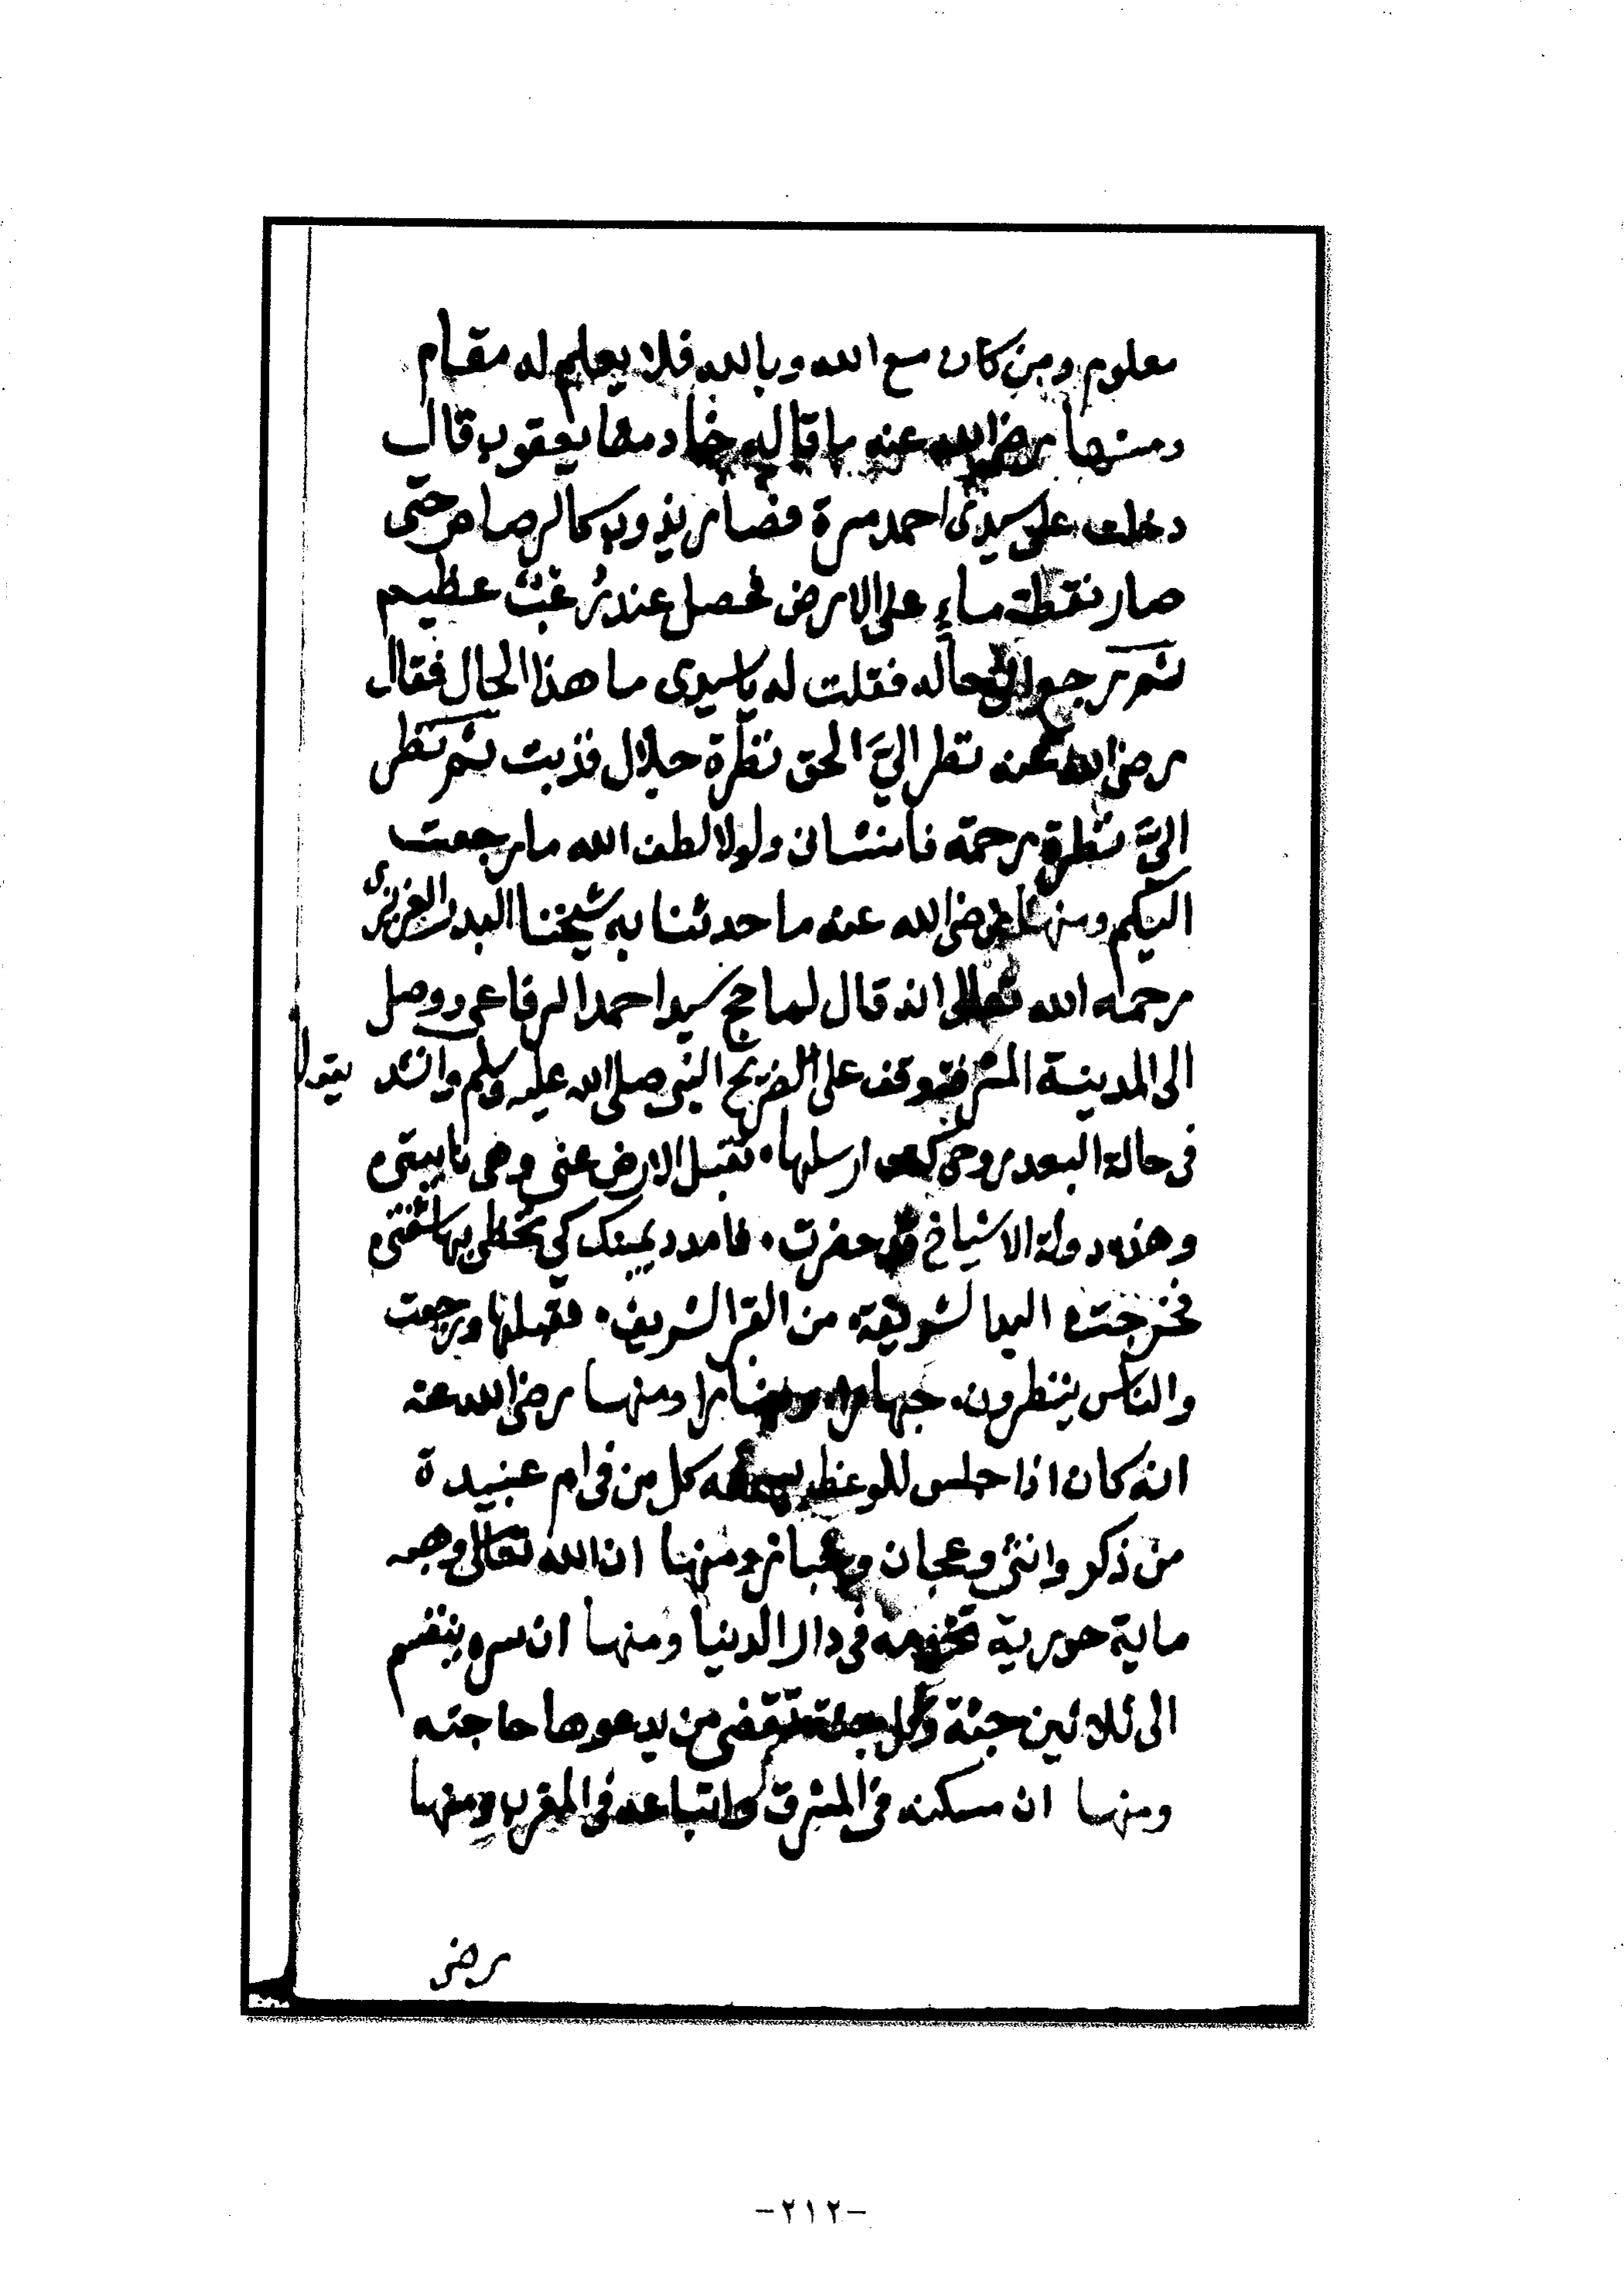 معلوم ومن كان مع الله وبالله فلا يعلم له مقام
ومنها رضي الله عنه ما قاله خادمه يعقوب قال
دخلت على سيدى احمد مرة فصار يذوب كالرصاص حتى
صار نقطة ماء على الارض فحصل عندى غبّ عظيم
ثم رجع الى حاله فقلت له يا سيدى ما هذا الحال فقال
رضي الله عنه نظر اليَّ الحق نظرة جلال فذبت ثم نظر
اليَّ نظرة رحمة فانشانى ولولا لطف الله ما رجعت
اليكم ومنها رضي الله عنه ما حدثنا به شيخنا البدر العزيزى
رحمه الله تعالى انه قال لما حج سيد احمد الرفاعى ووصل
الى المدينة المشرفة وقف على الضريح النبى صلى الله عليه وسلم وانشد يقول
فى حالة البعد روحى كنت ارسلها . تقبل الارض عنى وهى نايبتى
وهذه دولة الاشياخ قد حضرت . فامدد يمينك كى تحظى بها شفتى
فخرجت اليد الشريفة من القبر الشريف . فقبلها ورجعت
والناس ينظرون . جهارا ومنها رضي الله عنه
انه كان اذا جلس للوعظ يسمعه كل من فى ام عبيدة
من ذكر وانثى وعجان ومنها ان الله تعالى وجه
ماية حورية تخدمه فى دار الدنيا ومنها ان سره ينقسم
الى ثلاثين جثة وكل جثة تقضى من يدعوها حاجته
ومنها ان مسكنه فى المشرق واتباعه فى المغرب ومنها
رضي
-٢١٢-